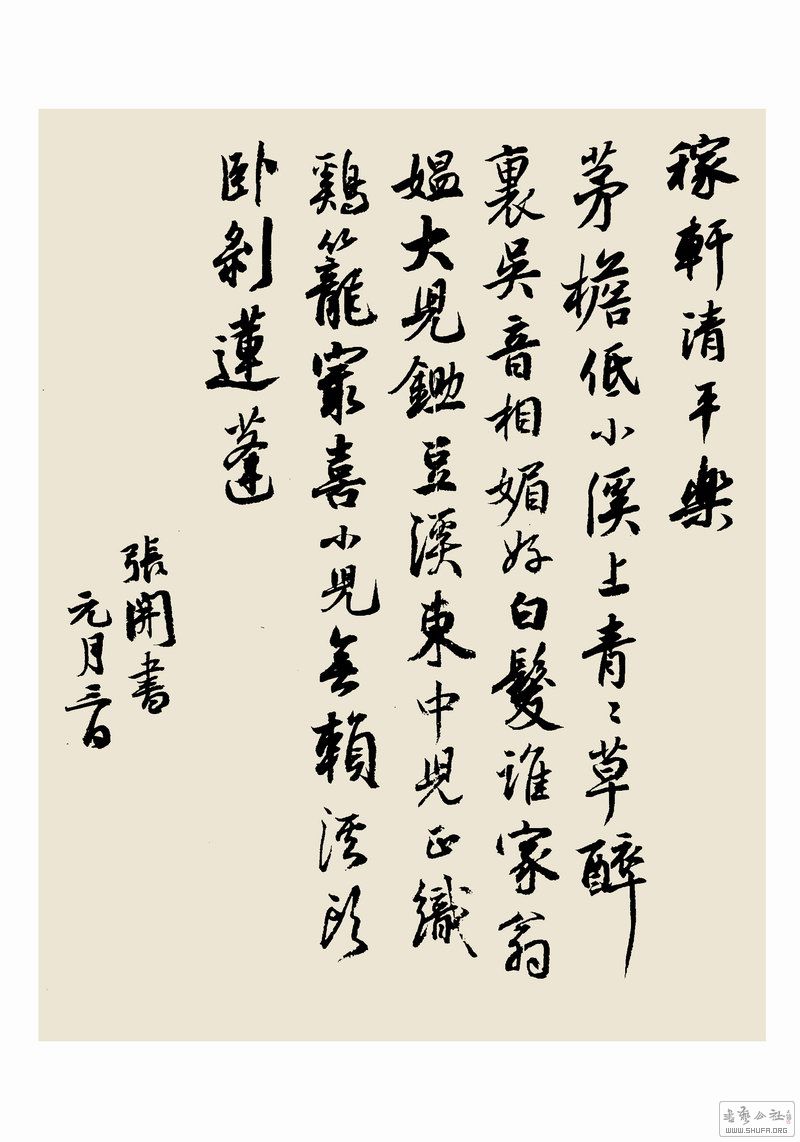 稼軒清平樂
茅檐低小溪上青〻草醉
裏吳音相媚好白髮誰家翁
媪大兒鋤豆溪東中兒正織
鷄籠最喜小兒無賴溪頭
卧剝蓮蓬
張開書
元月三日
書藝公社
WWW.SHUFA.ORG